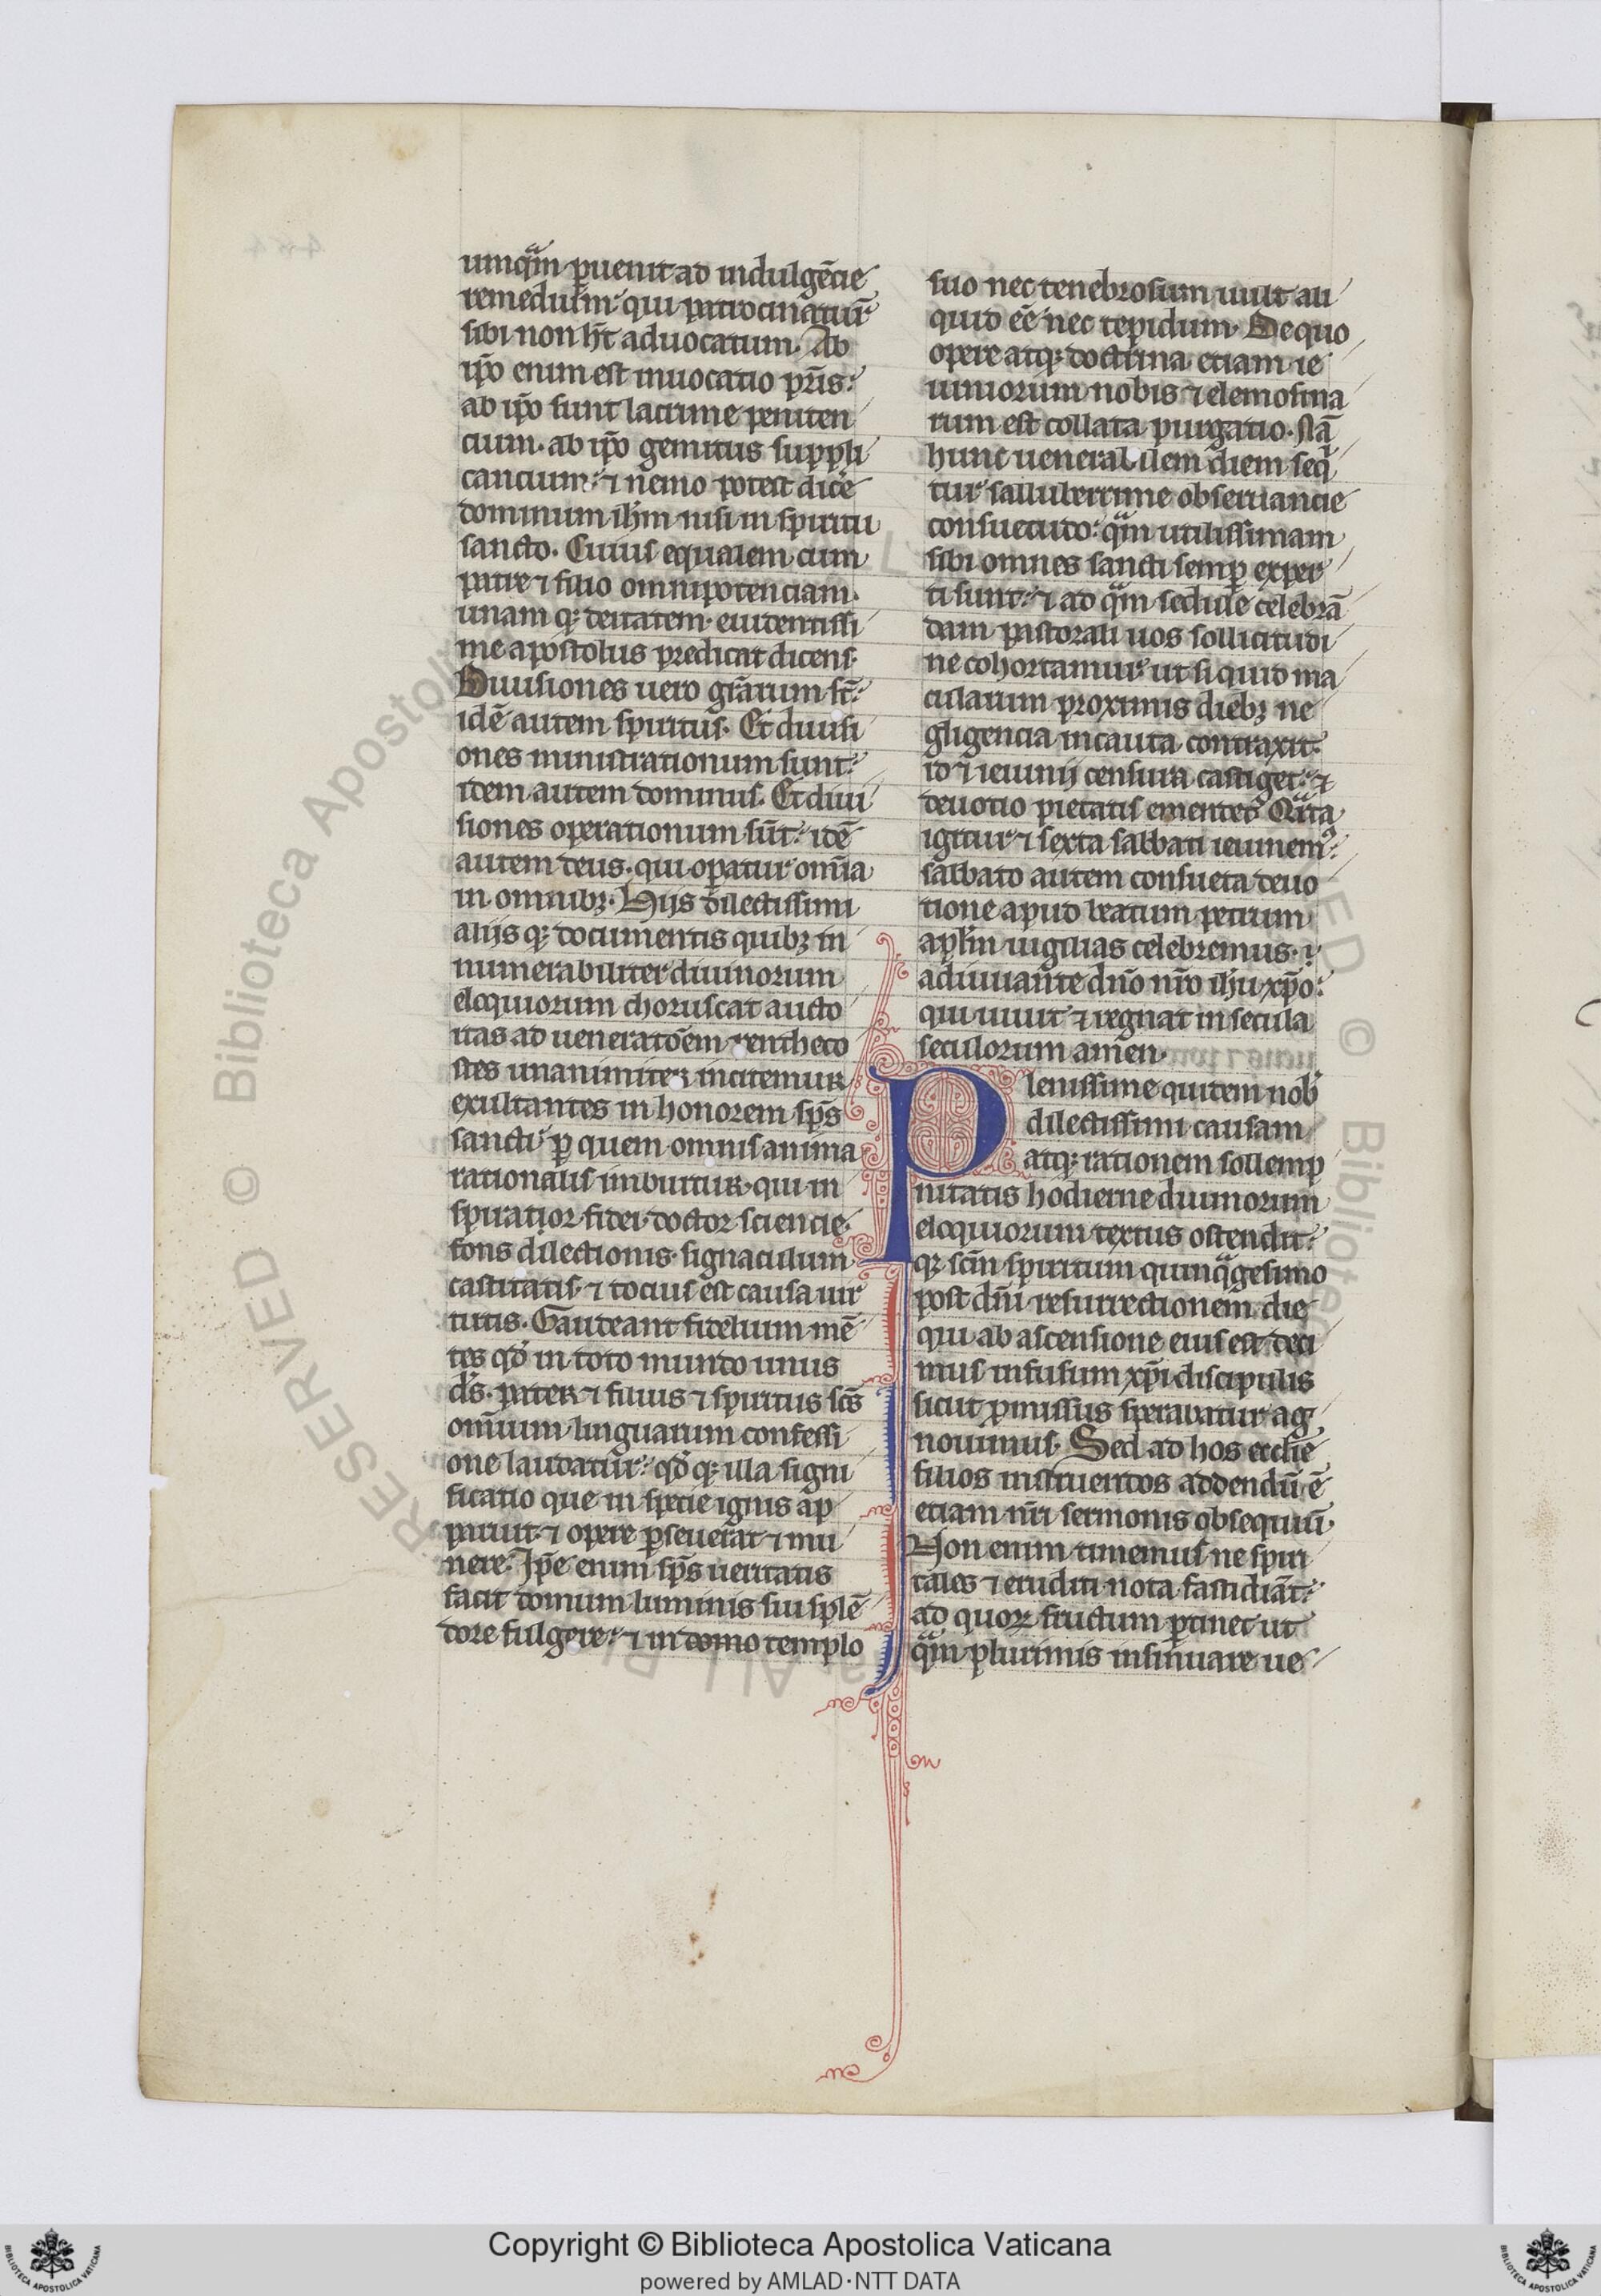 umqᷓm ꝑuenit ad indulgēcie
remedium qui patrocinaturͥ
sibi non hꝫt aduocatum. Ab
ip̄o enim est inuocatio pr̄is:
ab ip̄o sunt lacrime peniten
cium. ab ip̄o gemitus suppli
cancium: ⁊ nemo potest dice
dominum ih̄m nisi in spiritu
sancto. Cuius equalem cum
patre ⁊ filio omnipotenciam.
unam qꝫ deitatem euidentissi
me apostolus predicat dicens.
Diuisiones uero gr̄arum st̄:
idē autem spiritus. Et diuisi
ones ministrationum sunt:
idem autem dominus. Et diui
siones operationum sūt: idē
autem deus. qui operatur om̄ia
in omnibꝫ. Hijs dilectissimi
alijs qꝫ documentis quibꝫ in
numerabiliter diuinorum
eloquiorum choruscat aucto
ritas ad ueneratōem pentheco
stes unanimiter incitemur
exultantes in honorem sp̄s
sancti ꝑ quem omnis anima
rationalis imbuitur. qui in
spiratior fidei. doctor sciencie.
fons dilectionis. signaculum
castitatis. ⁊ tocius est causa uir
tutis. Gaudeant fidelium mē
tes qd̄ in toto mundo unus
d̄s. pater ⁊ filius ⁊ spiritus sc̄s
om̄ium linguarum confessi
one laudatur: qd̄ qꝫ illa signi
ficatio que in specie ignis ap
paruit ⁊ opere ꝑseuerat ⁊ mu
nere. Ip̄e enim sp̄s ueritatis
facit domum luminis sui splē
dore fulgere: ⁊ in domo templo
suo nec tenebrosum uult ali
quid eē nec tepidum. De quo
opere atqꝫ doctrina etiam ie
iuniorum nobis ⁊ elemosina
rum est collata purgatio. Nā
hunc uenerabilem diem seq̄
tur salluberrime obseruancie
consuetudo: qᷓm utilissimam
sibi omnes sancti semꝑ exper
ti sunt: ⁊ ad qᷓm sedule celebrā
dam pastorali uos sollicitudi
ne cohortamur ut si quid ma
cularum proximis diebꝫ ne
gligencia incauta contraxit:
id ⁊ ieiunij censura castiget: ⁊
deuotio pietatis emendet. Qᷓrta
igitur ⁊ sexta sabbati ieiunemꝰ:
sabbato autem consueta deuo
tione apud beatum petrum
apl̄m uigilias celebremus. ⁊
adiuuante dn̄o nr̄o ih̄u xp̄o:
qui uiuit ⁊ regnat in secula
seculorum amen.
Plenissime quidem nob̄
dilectissimi causam
atqꝫ rationem sollemp
nitatis hodierne diuinorum
eloquiorum textus ostendit:
qꝫ sc̄m spiritum quinqᷓgesimo
post dn̄i resurrectionem die
qui ab ascensione eius est deci
mus infusum xp̄i discipulis
sicut ꝓmissus sperabatur ag
nouimus. Sed ad hos ecclie
filios instruendos addendū ē
etiam nr̄i sermonis obsequiū.
Non enim timemus ne spiri
tales ⁊ eruditi nota fastidiāt:
ad quoꝝ fructum ꝑtinet ut
qᷓm plurimis insinuare ue
RESERVED © Biblioteca Apostolica
Copyright © Biblioteca Apostolica Vaticana
powered by AMLAD·NTT DATA